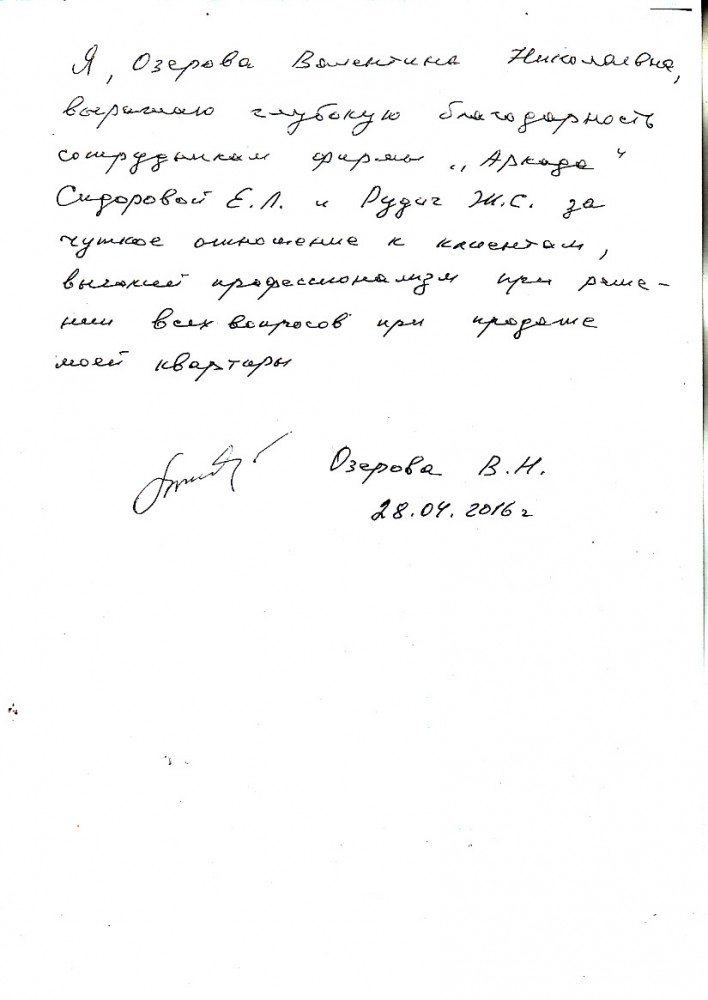 Я, Озерова Валентина Николаевна,
выражаю глубокую благодарность
сотрудникам фирмы „Аркада“
Сидоровой Е.Л. и Рудич Ж.С. за
чуткое отношение к клиентам,
высокий профессионализм при реше-
нии всех вопросов при продаже
моей квартиры
Озерова В.Н.
28.04.2016г